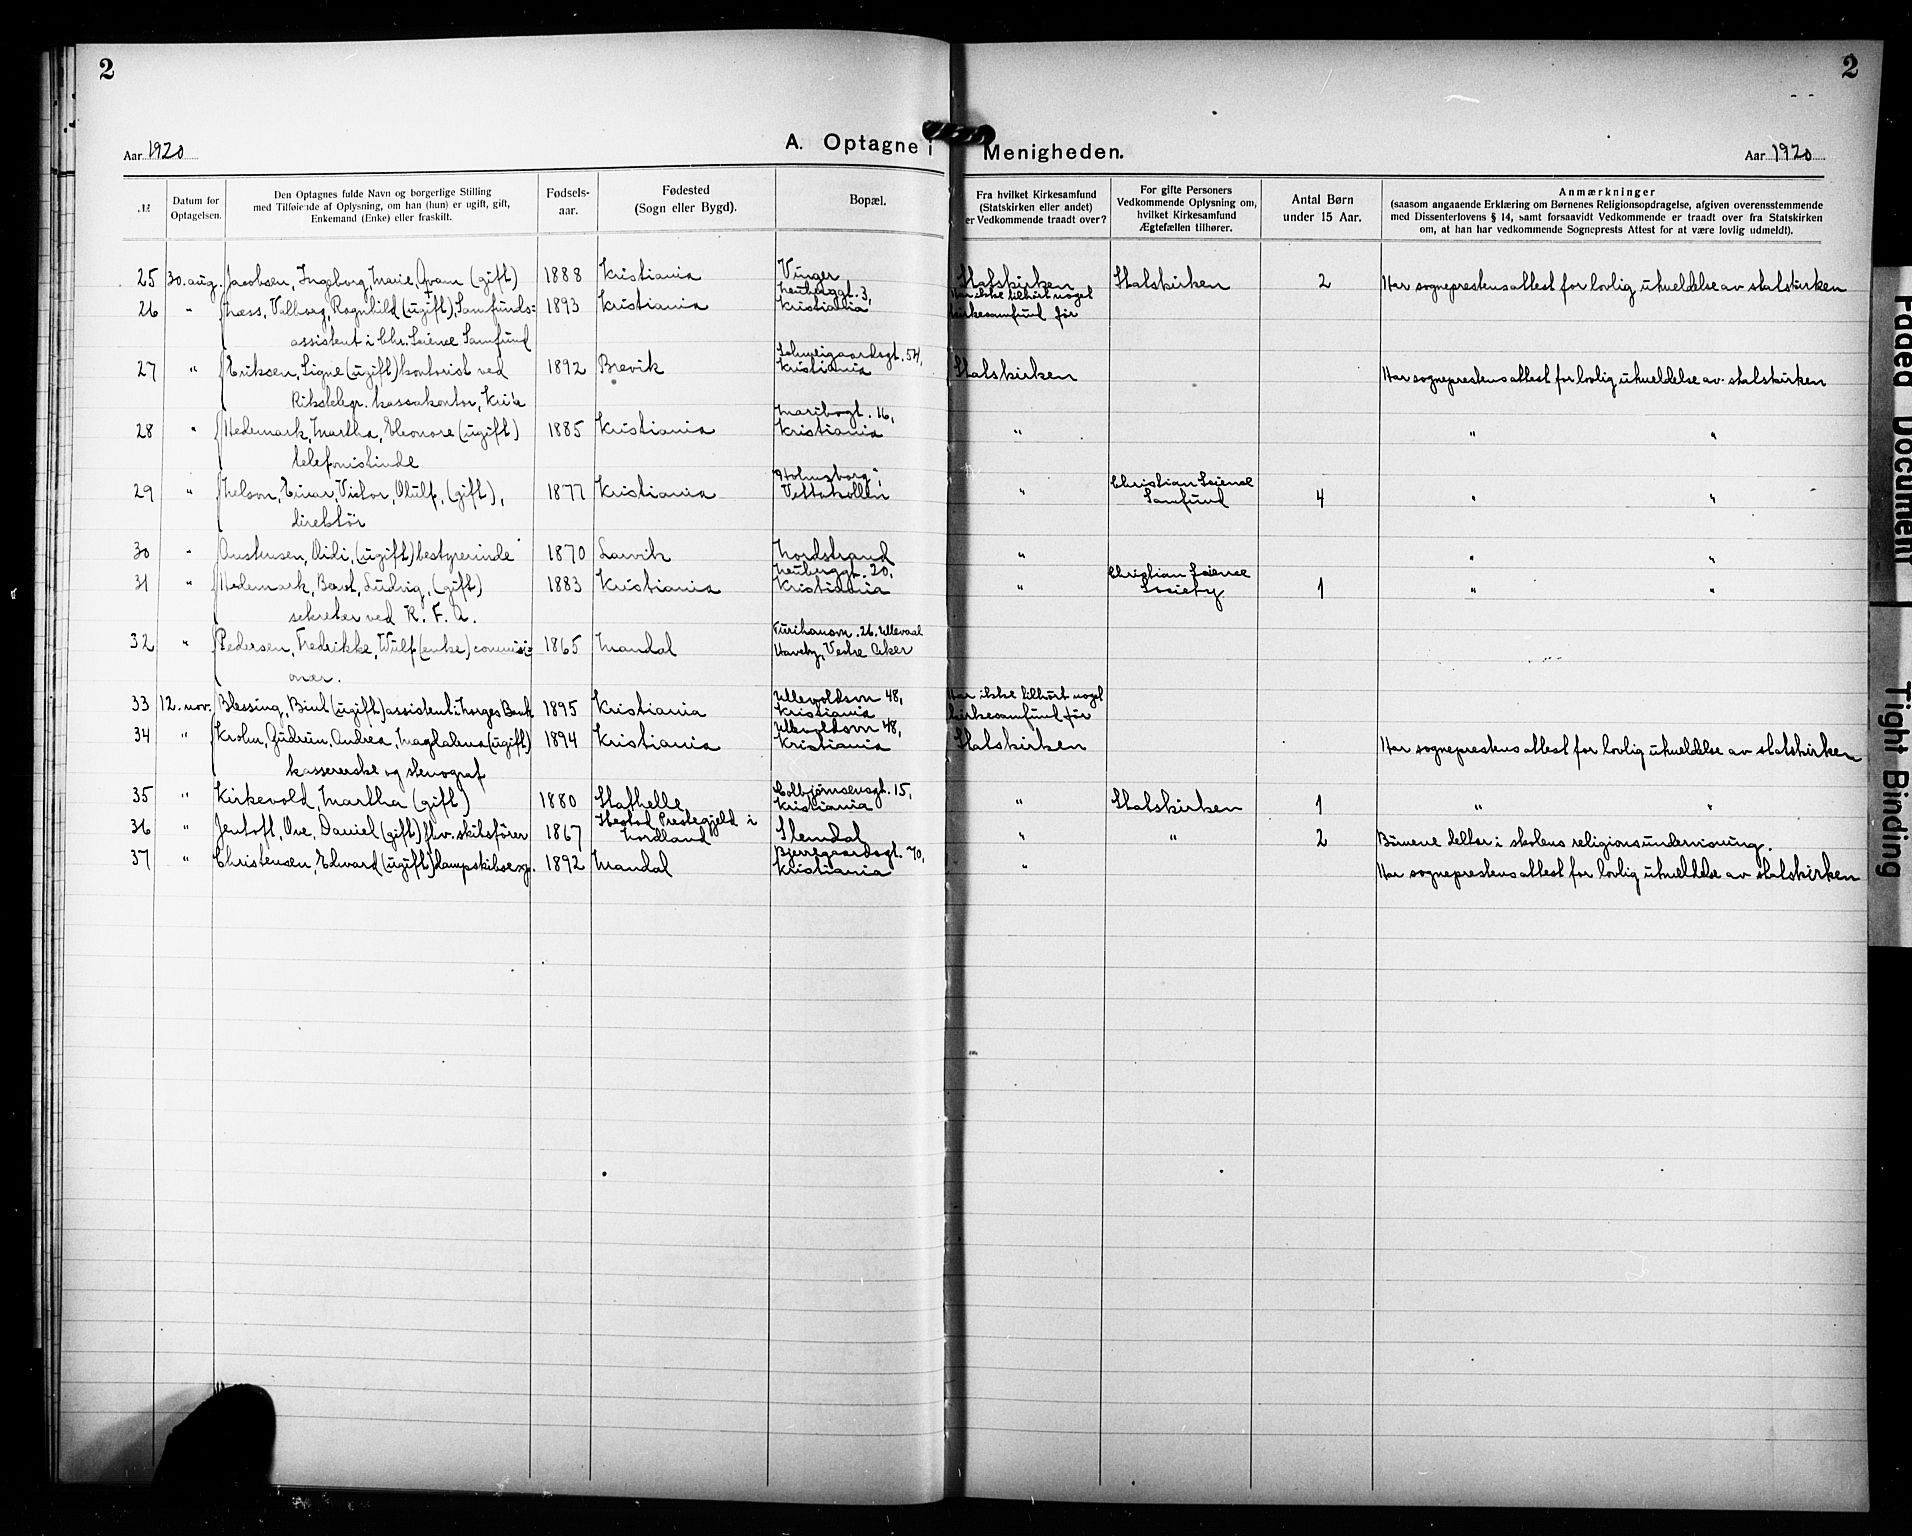 2
2
Aar 1920
A. Optagne i Menigheden.
Aar 1920
№
Datum for Optagelsen.
Den Optagnes fulde Navn og borgerlige Stilling
med Tilføiende af Oplysning, om han (hun) er ugift, gift,
Enkemand (Enke) eller fraskilt.
Fødsels-
aar.
Fødested
(Sogn eller Bygd).
Bopæl.
Fra hvilket Kirkesamfund
(Statskirken eller andet)
er Vedkommende traadt over?
For gifte Personers
Vedkommende Oplysning om,
hvilket Kirkesamfund
Ægtefællen tilhører.
Antal Børn
under 15 Aar.
Anmærkninger
(saasom angaaende Erklæring om Børnenes Religionsopdragelse, afgiven overensstemmende
med Dissenterlovens § 14, samt forsaavidt Vedkommende er traadt over fra Statskirken
om, at han har vedkommende Sogneprests Attest for at være lovlig udmeldt).
25 30. aug. Jacobsen, Ingeborg, Marie, Qvam (gift) 1888 Kristiania Vinger Statskirken Statskirken 2 Har sogneprestens attest for lovlig utmeldelse av statskirken
Neuberggt. 3, Har ikke tilhört noget
26 " Næss, Valborg, Ragnhild (ugift), Samfunds= 1893 Kristiania Kristiania kirkesamfund før
assistent i Chr. Science Samfund
Schweigaardsgt. 54,
27 " Eriksen, Signe (ugift) kontorist ved 1892 Brevik Kristiania Statskirken Har sogneprestens attest for lovlig utmeldelse av statskirken
Rikstelegr. kassakontor, Kr.ia
Maribogt. 16,
28 " Hedemark, Martha, Eleonore (ugift) 1885 Kristiania Kristiania " " "
telefonistinde
"Holmsborg", Christian Science
29 " Nelson, Einar, Victor, Olulf, (gift), 1877 Kristiania Vettakollen " Samfund 4 " "
direktör
30 " Austensen, Didi, (ugift) bestyrerinde 1870 Larvik Nordstrand " " "
Neuberggt. 20, Christian Science
31 " Hedemark, Bernt, Ludvig, (gift) 1883 Kristiania Kristiania " Society 1 " "
sekretær ved R. F. A.
26. Ullevaal
32 " Pedersen, Fredrikke, Wulf (enke) commisi- 1865 Mandal Haveby, Vestre Aker
onær.
Ullevoldsvn 48, Har ikke tilhört noget
33 12. nov. Blessing, Bint (ugift) assistent i Norges Bank 1895 Kristiania Kristiania kirkesamfund før
Ullevoldsvn 48,
34 " Krohn, Gudrun, Andrea, Magdalena (ugift) 1894 Kristiania Kristiania Statskirken Har sogneprestens attest for lovlig utmeldelse av statskirken
kassererske og stenograf
Colbjørnsensgt. 15,
35 " Kirkevold, Martha (gift) 1880 Stathelle Kristiania " Statskirken 1 " "
Prestegjeld i
36 " Jentoft, Ove, Daniel (gift) fhv. skibsfører 1867 Nordland Slemdal " " 2 Börnene deltar i skolens religionsundervisning.
Bjerregaardsgt. 70,
37 " Christensen, Edward (ugift) dampskibsexp. 1892 Mandal Kristiania " Har sogneprestens attest for lovlig utmeldelse av statskirken
Faded Document
Tight Binding